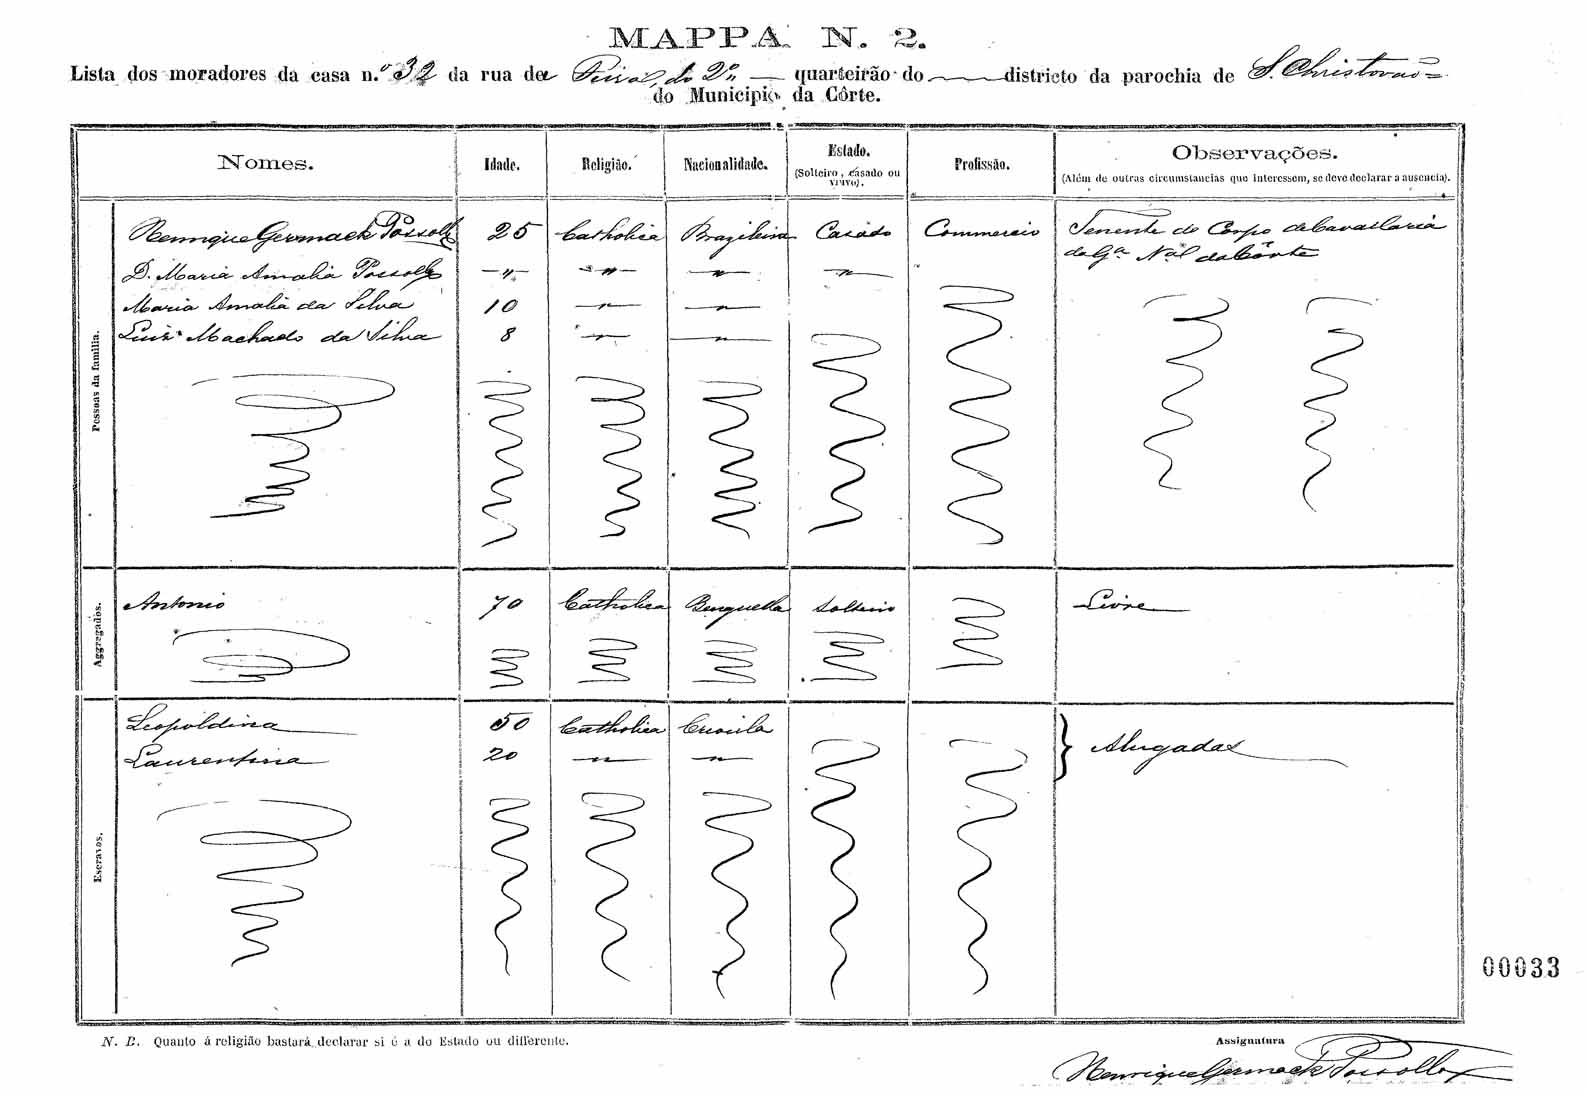 MAPPA N. 2.
Lista dos moradores da casa n.º 32 da rua de do 2º quarteirão do districto da parochia de S. Christovão
do Municipio da Côrte.
Nomes. Idade. Religião. Nacionalidade. Estado. Profissão. Observações.
(Solteiro, casado ou viuvo). (Além de outras circumstancias que interessem, se deve declarar a ausencia).
Pessoas da familia.
Henrique Germack Possollo 25 Catholica Brazileira Casado Commercio Tenente do Corpo de Cavallaria
da Gª Nal da Côrte
D. Maria Amalia Possollo " " " "
Maria Amalia da Silva 10 " "
Luiz Machado da Silva 8 " "
Aggregados.
Antonio 70 Catholica Benguella Solteiro Livre
Escravos.
Leopoldina 50 Catholica Crioula
Laurentina 20 " "
} Alugadas
00033
N. B. Quanto á religião bastará declarar si é a do Estado ou differente.
Assignatura
Henrique Germack Possollo